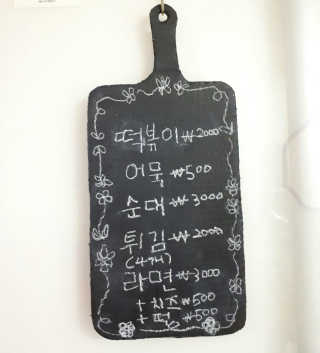 떡볶이 ₩2000
어묵 ₩500
순대 ₩3000
튀김 ₩2000
(4개)
라면 ₩3000
+ 치즈 ₩500
+ 떡 ₩500